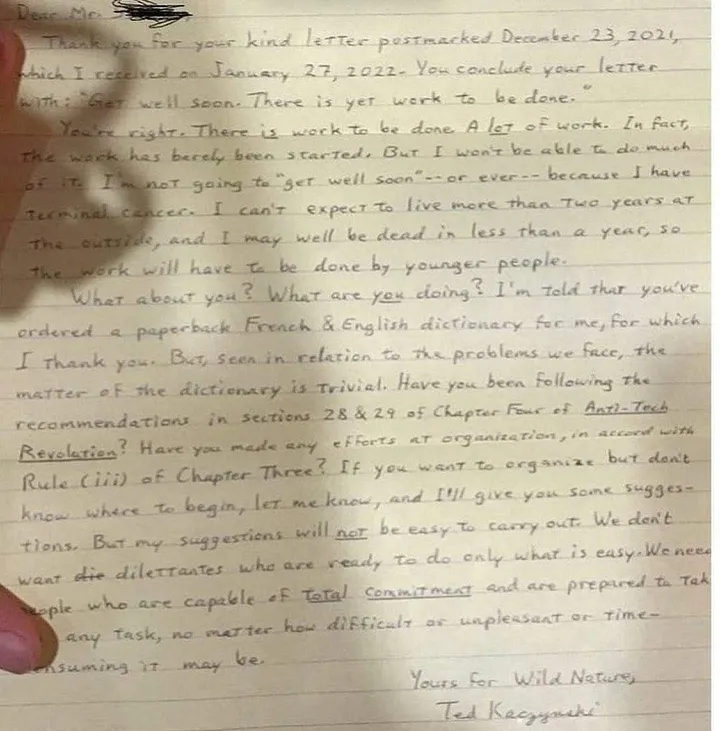 Dear Mr.
Thank you for your kind letter postmarked December 23, 2021,
which I received on January 27, 2022. You conclude your letter
with: "Get well soon. There is yet work to be done."
You're right. There is work to be done. A lot of work. In fact,
the work has barely been started. But I won't be able to do much
of it. I'm not going to "get well soon" -- or ever -- because I have
terminal cancer. I can't expect to live more than two years at
the outside, and I may well be dead in less than a year, so
the work will have to be done by younger people.
What about you? What are you doing? I'm told that you've
ordered a paperback French & English dictionary for me, for which
I thank you. But, seen in relation to the problems we face, the
matter of the dictionary is trivial. Have you been following the
recommendations in sections 28 & 29 of Chapter Four of Anti-Tech
Revolution? Have you made any efforts at organization, in accord with
Rule (iii) of Chapter Three? If you want to organize but don't
know where to begin, let me know, and I'll give you some sugges-
tions. But my suggestions will not be easy to carry out. We don't
want die dilettantes who are ready to do only what is easy. We need
people who are capable of total commitment and are prepared to tak
any task, no matter how difficult or unpleasant or time-
consuming it may be.
Yours for Wild Nature,
Ted Kaczynski